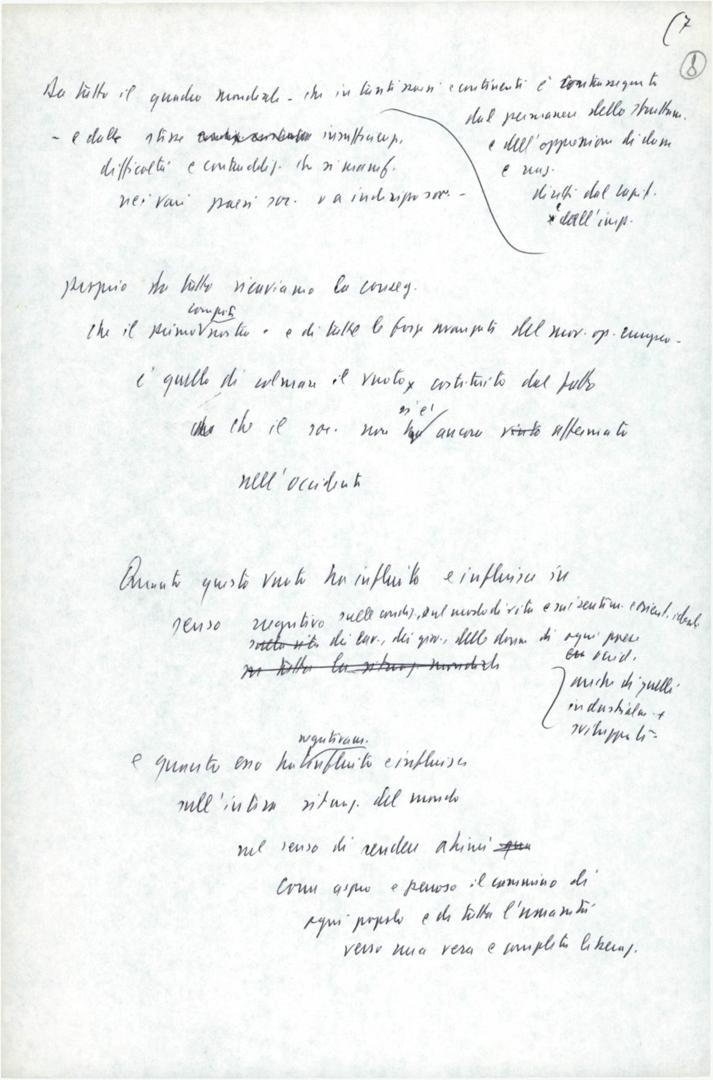 (7
8
Da tutto il quadro mondiale - che in tanti paesi e continenti è contrassegnato
dal permanere dello sfruttam.
e dell'oppressione di dom
e naz.
diretti dal capit.
e dall'imp.
- e dalle stesse insufficienze,
difficoltà e contraddiz. che si manif.
nei vari paesi soc. o a indirizzo soc. -
proprio da tutto ricaviamo la conseg.
compito
che il primo nostro - e di tutte le forze avanzate del mov. op. europeo -
è quello di colmare il vuoto costituito dal fatto
si è
che il soc. non ancora affermato
nell'occidente
Quanto questo vuoto ha influito e influisce in
senso negativo sulle condiz., sul modo di vita e sui sentim. e orient. ideali
di lav., dei giov., delle donne di ogni paese
occid.
anche di quelli
industrialm. +
sviluppati -
negativam.
e quanto esso ha influito e influisce
sull'intera situaz. del mondo
nel senso di rendere ahimè
come aspro e penoso il cammino di
ogni popolo e di tutta l'umanità
verso una vera e completa liberaz.